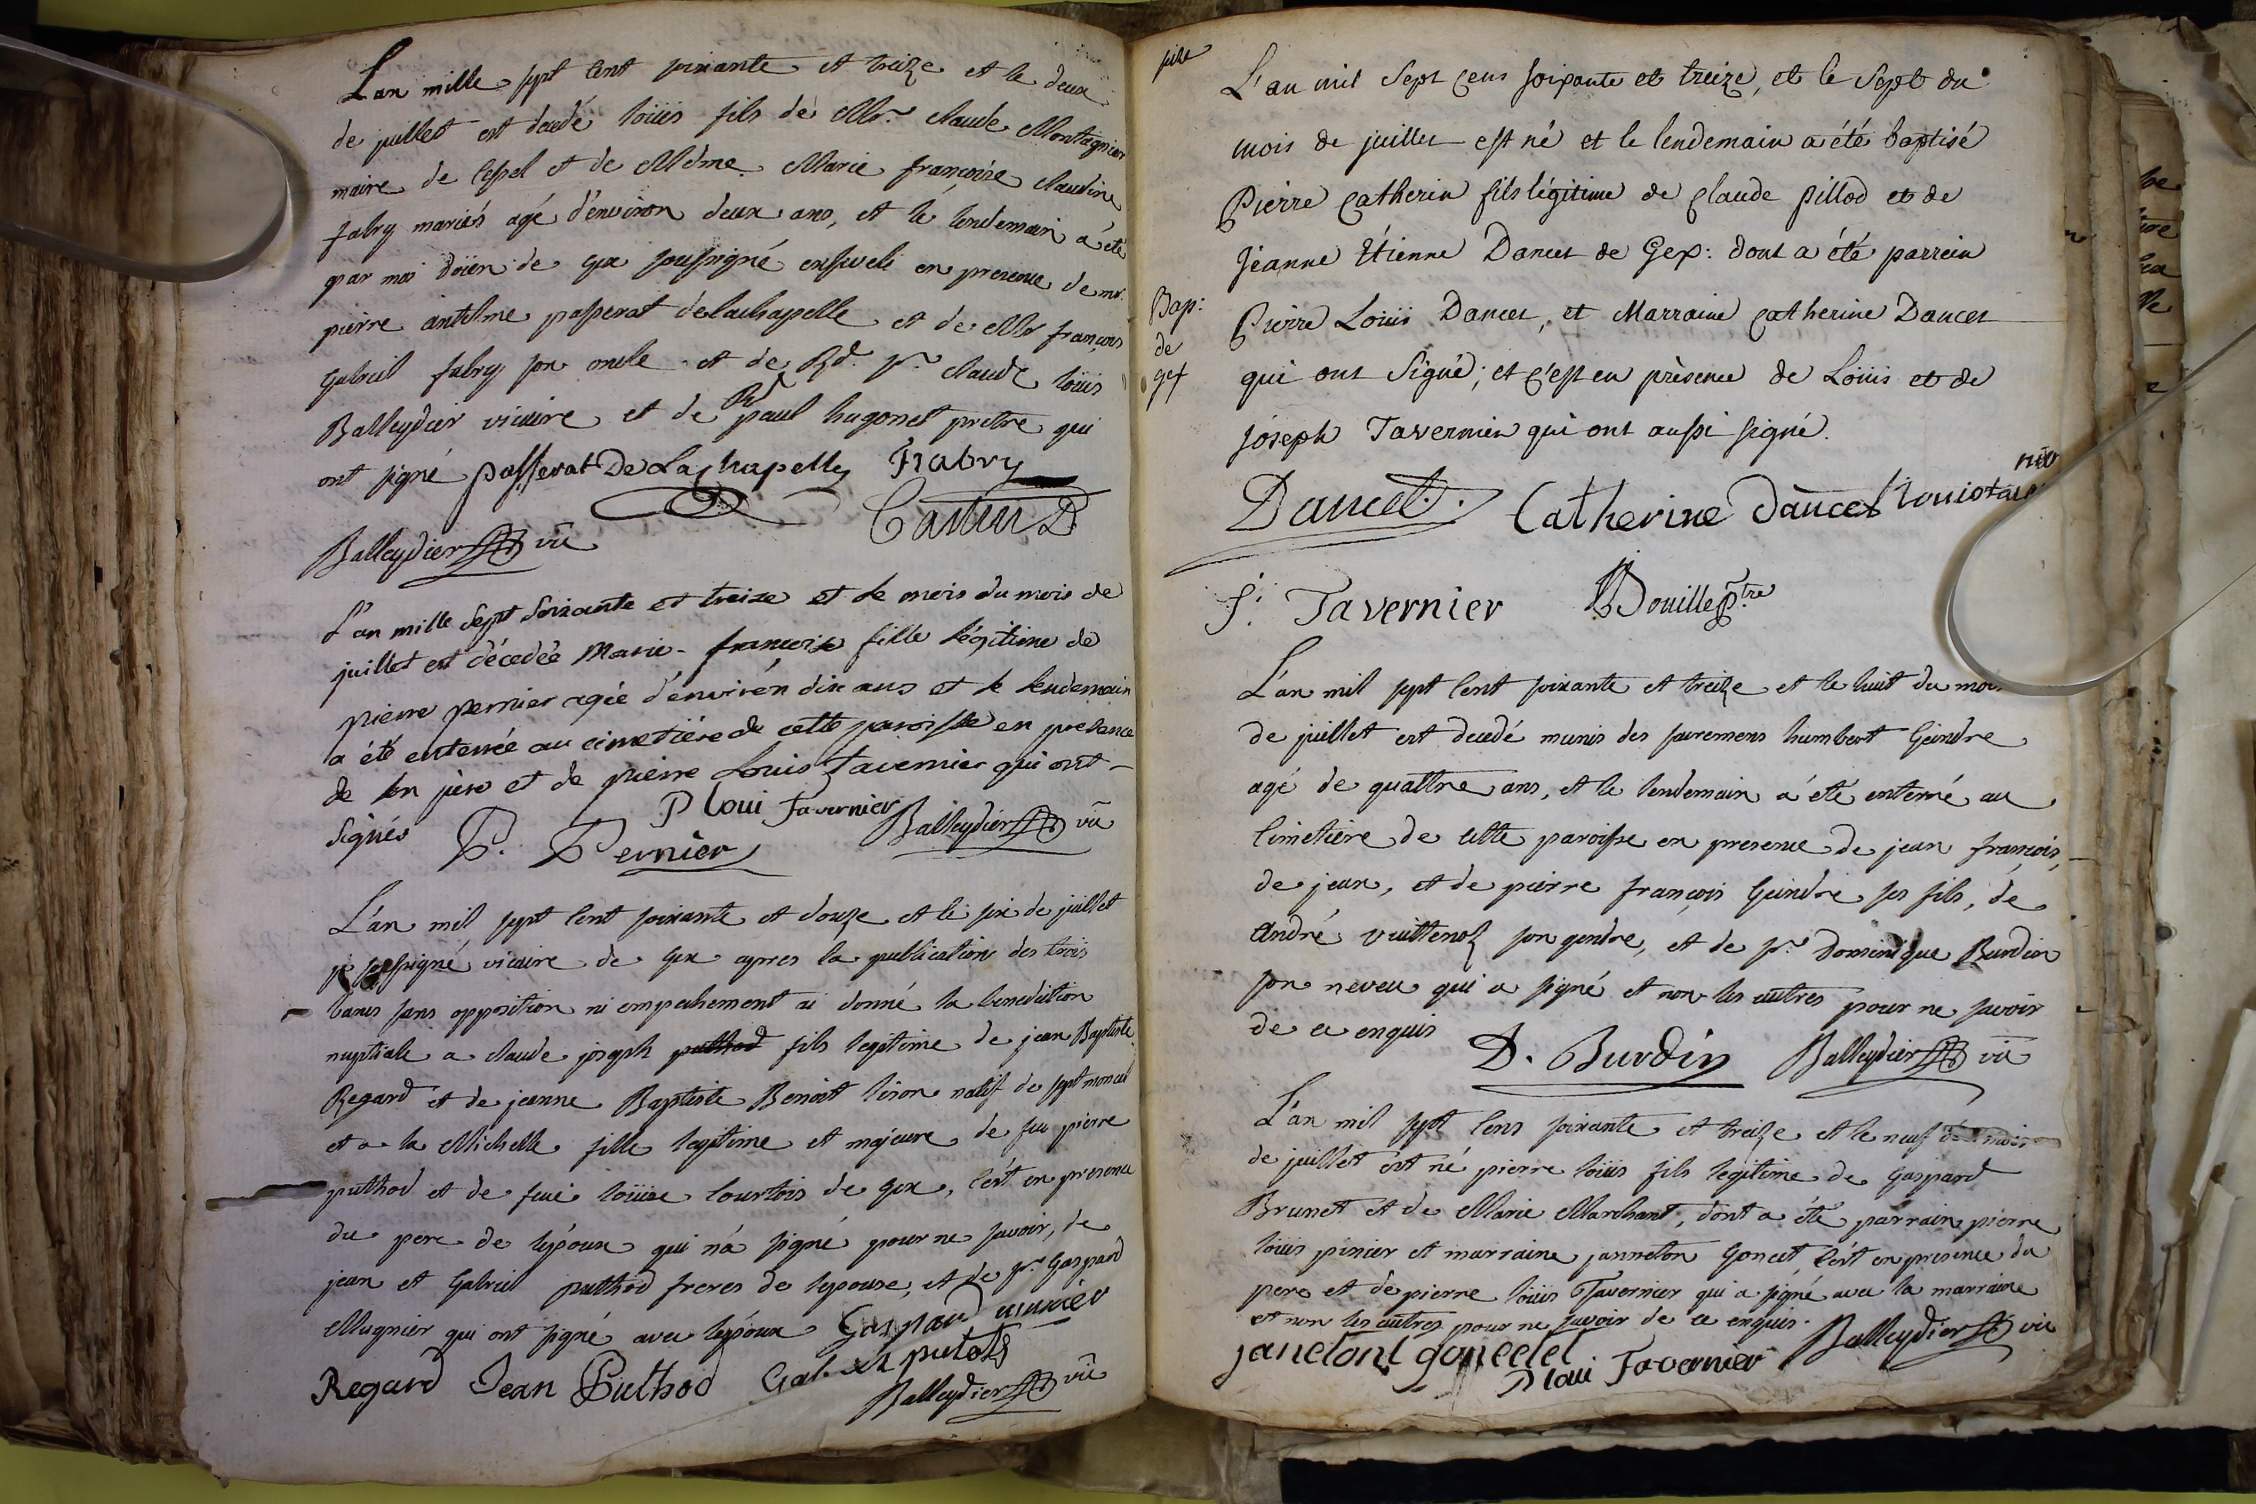 L'an mille sept cent soixante et treize et le deux
de juillet est decedé loüis fils de Mr. claude Montagnier
maire de lessel et de Mdme Marie françoise claudine
fabry mariés agé d'environ deux ans, et le lendemain a été
par moi doïen de gex soussigné enseveli en presence de mr.
pierre antelme passerat delachapelle et de Mr françois
gabriel fabry son oncle et de Rd. Sr. claude loüis
Balleydier vicaire et de Rd paul hugonet pretre qui
ont signé passerat De Lachapelle Fabry
Castin D
Balleydier vic
L'an mille sept soixante et treize et le mois du mois de
juillet est décedée Marie-françoise fille légitime de
pierre pernier agée d'environ dix ans et le lendemain
a été enterrée au cimetière de cette paroisse en presence
de son père et de pierre Louis Tavernier qui ont
signés P. Pernier P loui Tavernier Balleydier vic
L'an mil sept cent soixante et douze et le six de juillet
je soussigné vicaire de gex apres la publication des trois
bancs sans opposition ni empechement ai donné la benediction
nuptiale a claude joseph puthod fils legitime de jean Baptiste
Regard et de jeanne Baptiste Benoit lison natif de septmoncel
et a la Michelle fille legitime et majeure de feu pierre
puthod et de feüe loüise courtois de gex, c'est en presence
du pere de lepoux qui n'a signé pour ne savoir, de
jean et gabriel puthod freres de lepouse, et de sr. gaspard
Mugnier qui ont signé avec lepoux Gaspard munier
Regard Jean Puthod Gabriel putots
Balleydier vic
L'an mil sept cens soixante et treize, et le sept du
mois de juillet est né et le lendemain a été baptisé
Pierre Catherin fils légitime de claude pillod et de
Jeanne Etienne Dancet de Gex: dont a été parrein
Bap:
de
gex
Pierre Loüis Dancet, et Marraine Catherine Dancet
qui ont signé; et c'est en présence de Loüis et de
joseph Tavernier qui ont aussi signé.
Dancet. Catherine dancet
J. Tavernier Douille Ptre
L'an mil sept cent soixante et treize et le huit du mois
de juillet est decedé munis des sacremens humbert Gindre
agé de quattre ans, et le lendemain a été enterré au
cimetière de cette paroisse en presence de jean françois,
de jean, et de pierre françois Gindre ses fils, de
andré vuittenoz son gendre, et de sr. Dominique Burdin
son neveu qui a signé et non les autres pour ne savoir
de ce enquis D. Burdin Balleydier vic
L'an mil sept cens soixante et treize et le neuf du mois
de juillet est né pierre loüis fils legitime de gaspard
Brunet et de Marie Marchant, dont a été parrain pierre
loüis pinier et marraine janneton goncet, c'est en presence du
pere et de pierre loüis Tavernier qui a signé avec la marraine
et non les autres pour ne savoir de ce enquis.
janetont goncetet P loui Tavernier Balleydier vic